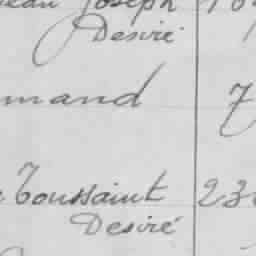 Joseph
Desiré
mand 7
Toussaint 23
Desiré